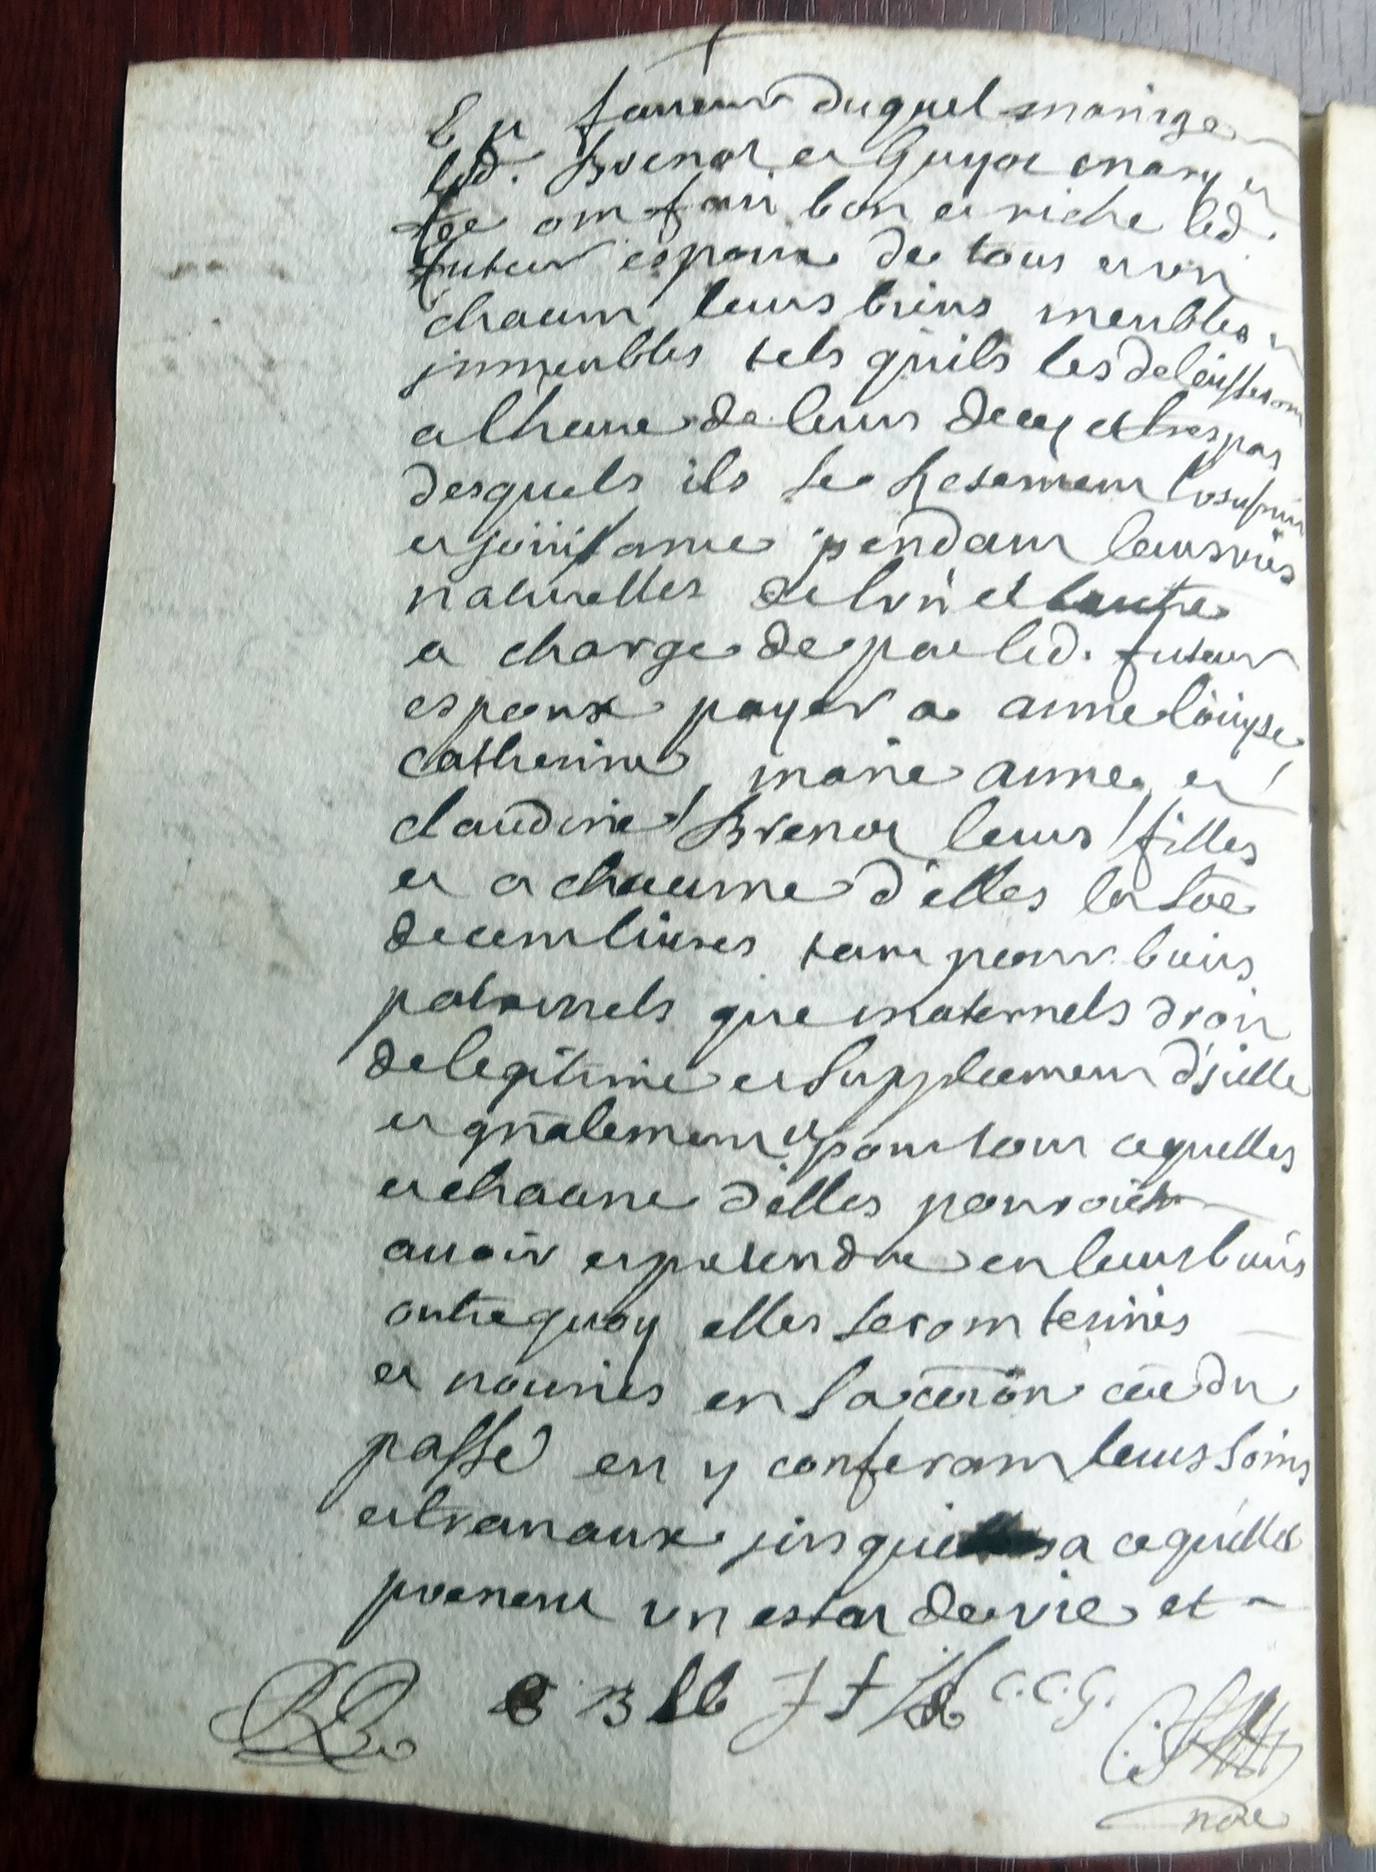 En faueur duquel mariage
led. Brenot et Guyot mary et
fee ont fait bon et riche led.
futeur espoux de tous et vn
chacun leurs biens meubles et
jmmeubles tels quils les delaisseront
a lheure de leurs deces et trespas
desquels ils se Reseruent lusufruit
et jouissance pendant leurs vies
naturelles de lvn et lautre
a charge de par led. futeur
espoux payer a anne louyse
catherine marie anne et
claudine Brenot leurs filles
et a chacune d'elles la soe
de cent liures tant pour biens
paternels que maternels droit
de legitime et supplement d'jcelle
et gnalement pour tout ce quelles
et chacune d'elles pouroient
auoir et pretendre en leurs biens
outre quoy elles seront tenues
et nouries en sa coron coe du
passé en y conferant leurs soins
et trauaux jusque a ce qu'elles
prenent vn estat de vie et
B B C.C.G.
nore